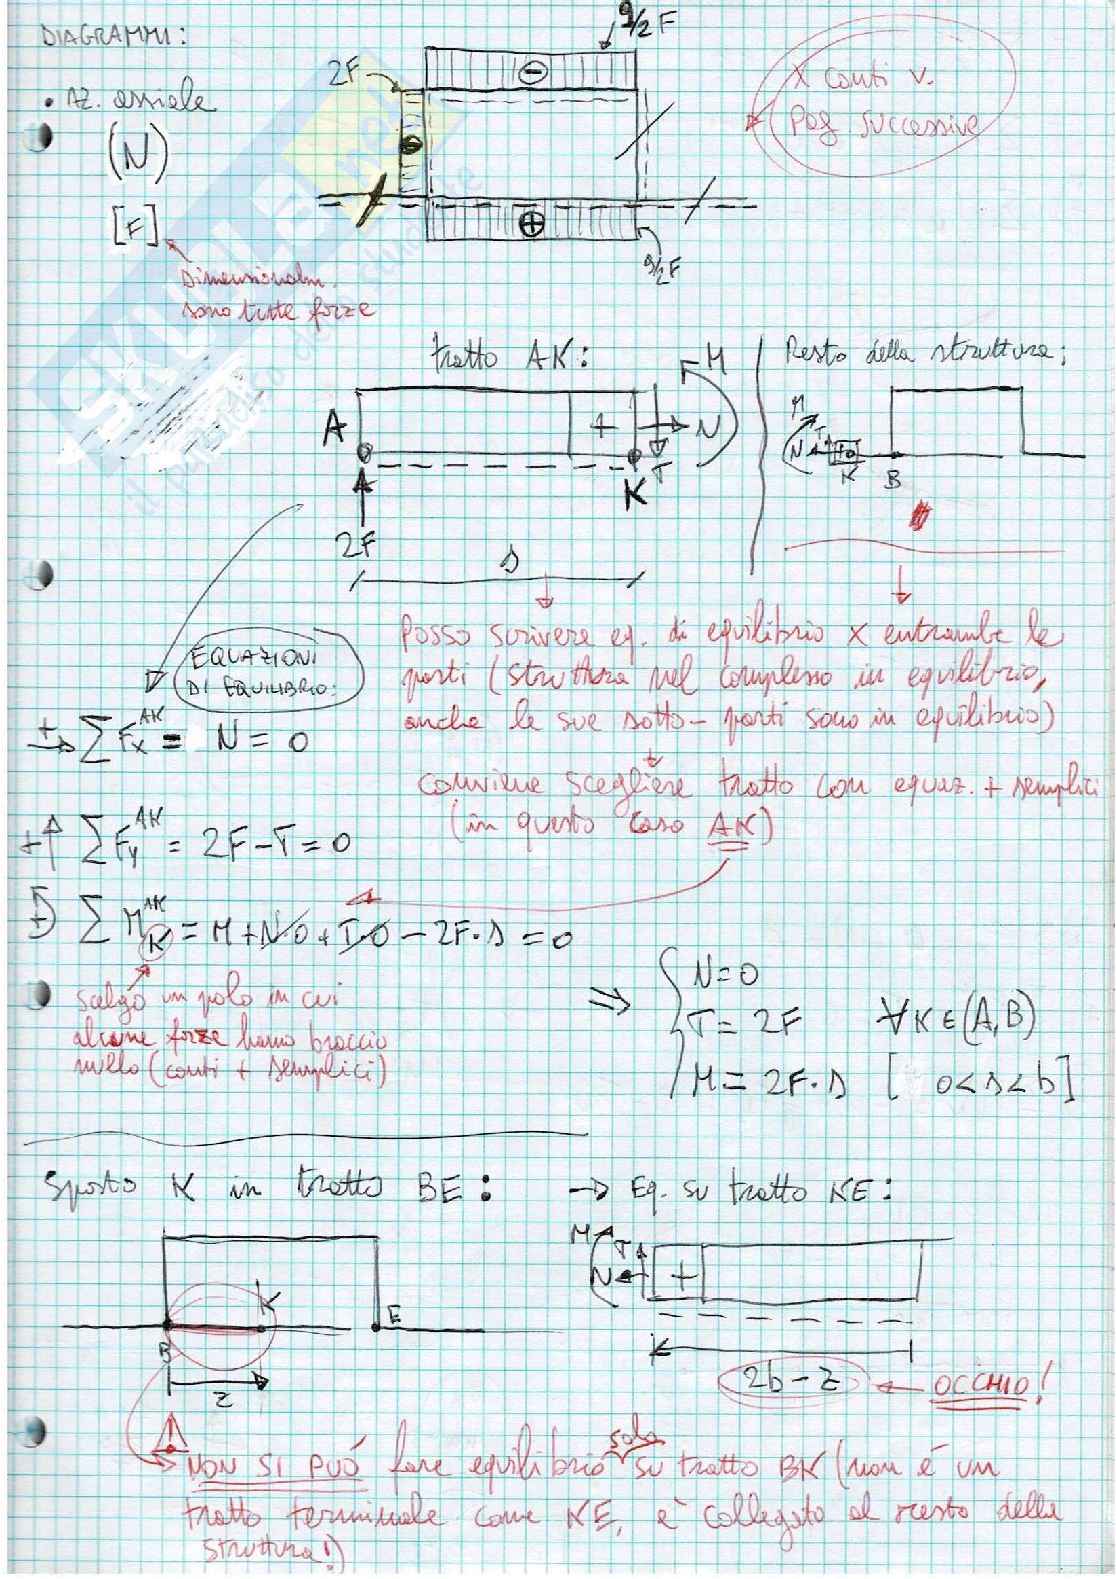 DIAGRAMMI:
9/2 F
2F
• Az. assiale
(N)
[F]
Dimensionalm.
sono tutte forze
x conti v.
pag successive
−
−
+
9/2 F
tratto AK:
A
A
2F
+
M
N
T
K
s
Resto della struttura:
M
N
T
K
B
EQUAZIONI
DI EQUILIBRIO:
Posso scrivere eq. di equilibrio x entrambe le
parti (struttura nel complesso in equilibrio,
anche le sue sotto-parti sono in equilibrio)
conviene scegliere tratto con equaz. + semplici
(in questo caso AK)
+→ ∑ Fx^AK = N = 0
+↑ ∑ Fy^AK = 2F - T = 0
+ ∑ M_K^AK = M + N·0 + T·0 - 2F·s = 0
Scelgo un polo in cui
alcune forze hanno braccio
nullo (conti + semplici)
⇒ { N = 0
T = 2F ∀K∈(A,B)
M = 2F·s [ 0<s<b ]
Sposto K in tratto BE: → Eq. su tratto KE:
B
K
E
z
M
T
N
+
2b - z ← OCCHIO!
! NON SI PUÓ fare equilibrio solo su tratto BK (non é un
tratto terminale come KE, è collegato al resto della
struttura!)